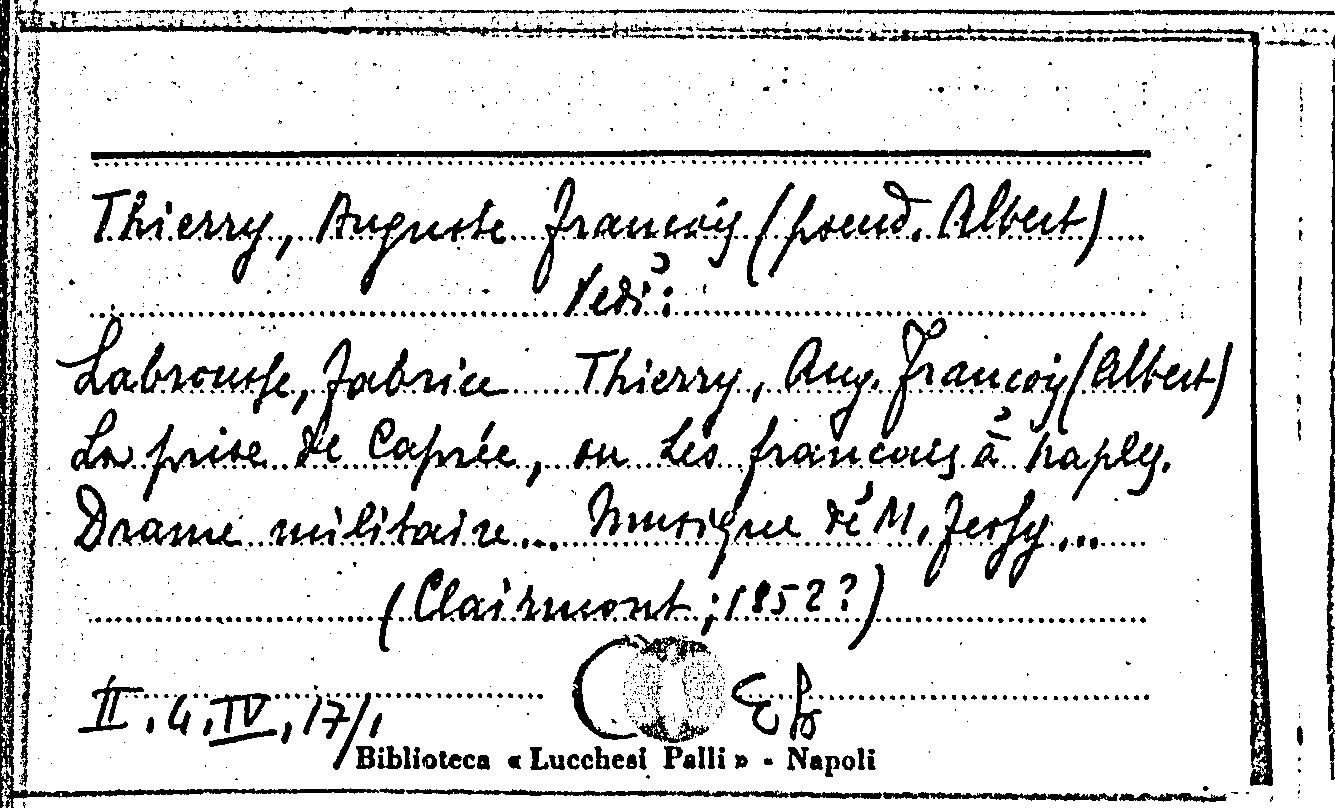 Thierry, Auguste Francois (pseud. Albert)
Vedi:
Labrousse, Fabrice Thierry, Aug. Francois (Albert)
La prise de Caprée, ou Les francais à Naples.
Drame militaire... Musique de M. Jessy...
(Clairmont; 1852?)
II. 4. IV, 17/1
Biblioteca « Lucchesi Palli » - Napoli